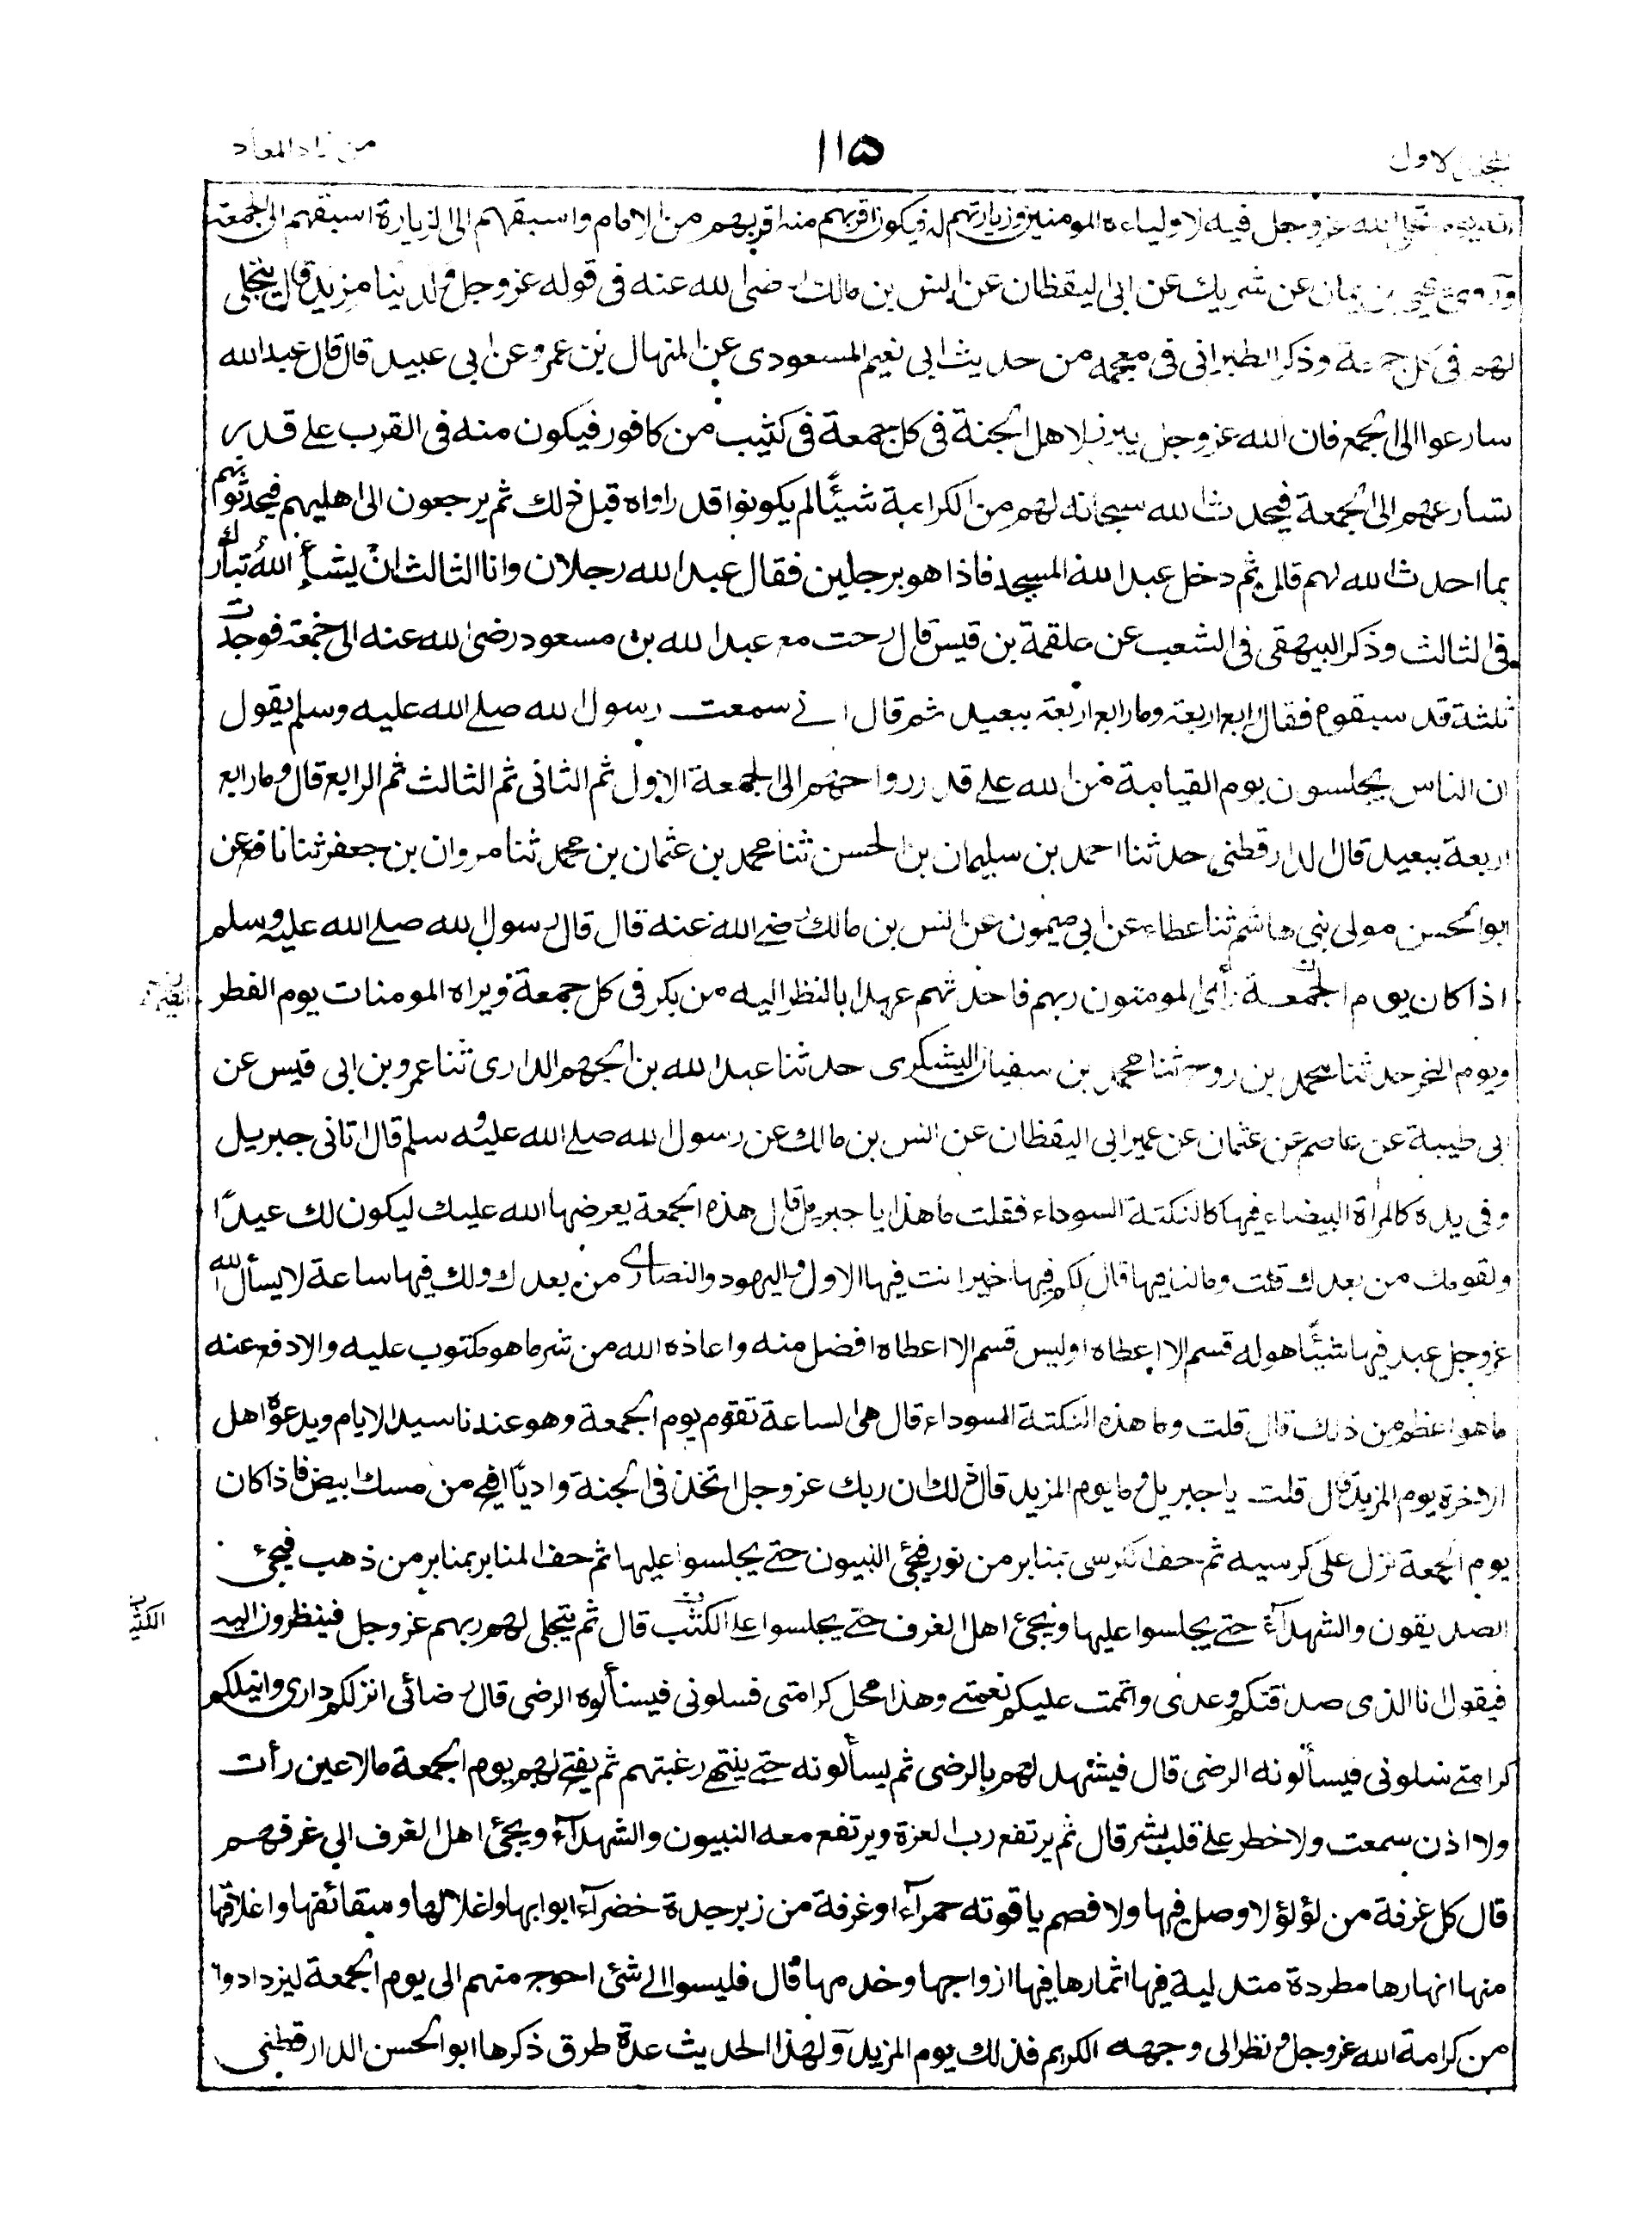 المجلد الاول
١١٥
من زاد المعاد
انه يوم يتجلى الله عزوجل فيه لاولياءه المومنين وزيارتهم له فيكون اقربهم منه اقربهم من الامام واسبقهم الى الزيارة اسبقهم الى الجمعة
وروى يحيى بن يمان عن شريك عن ابى اليقظان عن انس بن مالك رضى الله عنه فى قوله عزوجل ولدينا مزيد قال يتجلى
لهم فى كل جمعة وذكر الطبرانى فى معجمه من حديث ابى نعيم المسعودى عن المنهال بن عمرو عن ابى عبيد قال قال عبد الله
سارعوا الى الجمع فان الله عزوجل يبرز لاهل الجنة فى كل جمعة فى كثيب من كافور فيكون منه فى القرب على قدر
تسارعهم الى الجمعة فيحدث الله سبحانه لهم من الكرامة شيئًا لم يكونوا قد راواه قبل ذلك ثم يرجعون الى اهليهم فيحدثونهم
بما احدث الله لهم قال ثم دخل عبد الله المسجد فاذا هو برجلين فقال عبد الله رجلان وانا الثالث ان يشأ الله تبارك
فى الثالث وذكر البيهقى فى الشعب عن علقمة بن قيس قال رحت مع عبد الله بن مسعود رضى الله عنه الى جمعة فوجدت
ثلثة قد سبقوه فقال رابع اربعة وما رابع اربعة ببعيد ثم قال انى سمعت رسول الله صلى الله عليه وسلم يقول
ان الناس يجلسون يوم القيامة من الله على قدر رواحهم الى الجمعة الاول ثم الثانى ثم الثالث ثم الرابع قال وما رابع
اربعة ببعيد قال الدارقطنى حدثنا احمد بن سليمان بن الحسن ثنا محمد بن عثمان بن محمد ثنا مروان بن جعفر ثنا نافع عن
ابو الحسن مولى بنى هاشم ثنا عطاء عن ابى ميمون عن انس بن مالك رضى الله عنه قال قال رسول الله صلى الله عليه وسلم
اذا كان يوم الجمعة رأى المومنون ربهم فاحدثهم عهدا بالنظر اليه من بكر فى كل جمعة ويراه المومنات يوم الفطر
ويوم النحر حدثنا محمد بن روح ثنا محمد بن سفيان اليشكرى حدثنا عبد الله بن الجهم الدارى ثنا عمرو بن ابى قيس عن
ابى طيبة عن عاصم عن عثمان عن عمير ابى اليقظان عن انس بن مالك عن رسول الله صلى الله عليه وسلم قال اتانى جبريل
وفى يده كالمراة البيضاء فيها كالنكتة السوداء فقلت ما هذا يا جبريل قال هذه الجمعة يعرضها الله عليك ليكون لك عيدًا
ولقومك من بعدك قلت وما لنا فيها قال لكم فيها خير انت فيها الاول واليهود والنصارى من بعدك ولك فيها ساعة لا يسأل الله
عزوجل عبد فيها شيئًا هو له قسم الا اعطاه او ليس قسم الا اعطاه افضل منه واعاذه الله من شر ما هو مكتوب عليه والا دفع عنه
ما هو اعظم من ذلك قال قلت وما هذه النكتة السوداء قال هى الساعة تقوم يوم الجمعة وهو عندنا سيد الايام ويدعوه اهل
الاخرة يوم المزيد قال قلت يا جبريل وما يوم المزيد قال ذلك ان ربك عزوجل اتخذ فى الجنة واديًا افيح من مسك ابيض فاذا كان
يوم الجمعة نزل على كرسيه ثم حف الكرسى بمنابر من نور فيجئ النبيون حتى يجلسوا عليها ثم حف المنابر بمنابر من ذهب فيجئ
الصديقون والشهدآء حتى يجلسوا عليها ويجئ اهل الغرف حتى يجلسوا على الكثب قال ثم يتجلى لهم ربهم عزوجل فينظرون اليه
الكثيب
فيقول انا الذى صدقتكم وعدى واتممت عليكم نعمتى وهذا محل كرامتى فسلونى فيسألوه الرضى قال رضائى انزلكم دارى وانيلكم
كرامتى سلونى فيسألونه الرضى قال فيشهد لهم بالرضى ثم يسألونه حتى ينتهى رغبتهم ثم يفتح لهم يوم الجمعة مالا عين رأت
ولا اذن سمعت ولا خطر على قلب بشر قال ثم يرتفع رب العزة ويرتفع معه النبيون والشهدآء ويجئ اهل الغرف الى غرفهم
قال كل غرفة من لؤلؤ لا وصل فيها ولا فصم ياقوته حمرآء او غرفة من زبرجدة خضرآء ابوابها واغلالها وسقائفها واغلاقها
منها انهارها مطردة متدلية فيها اثمارها فيها ازواجها وخدمها قال فليسوا الى شئ احوج منهم الى يوم الجمعة ليزدادوا
من كرامة الله عزوجل ونظر الى وجهه الكريم فذلك يوم المزيد ولهذا الحديث عدة طرق ذكرها ابو الحسن الدارقطنى